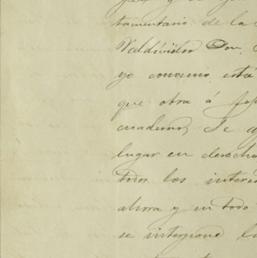 tamentario de la
Valdivides Don
yo convenio está
que obra á foj
cuaderno, Se a
lugar en derecho
todos los intere
ahora y en todo
se interpone la